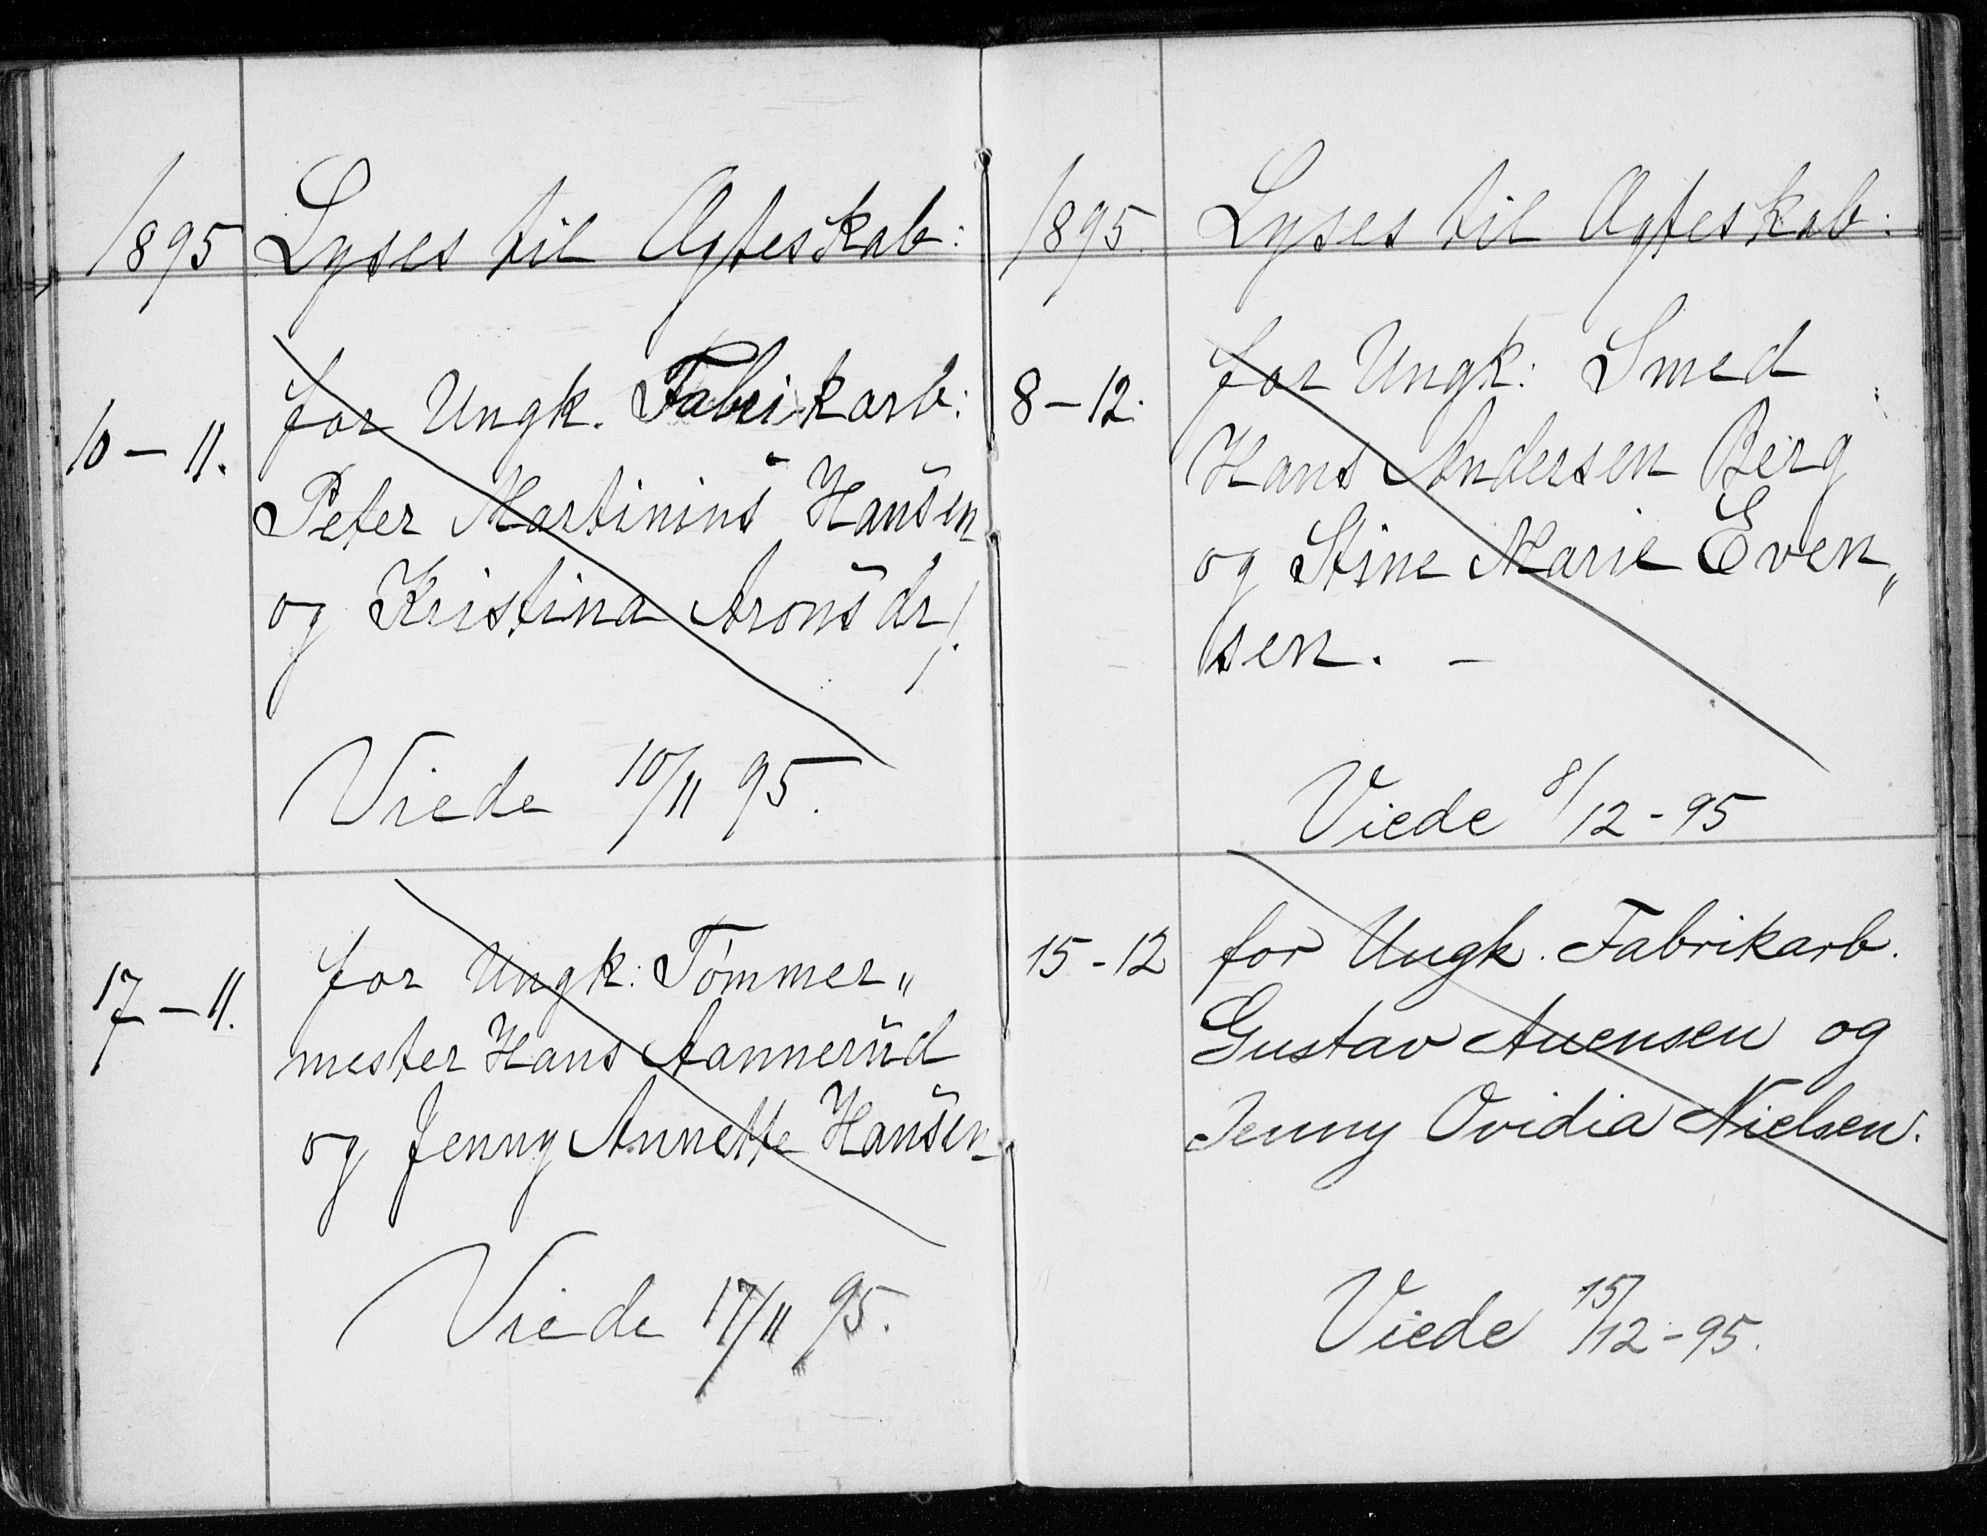 1895 Lyses til Ægteskab:
10 – 11. for Ungk. Fabrikarb:
Peter Martinius Hansen
og Kristina Aronsdr.
Viede 10/11 95.
17 – 11. for Ungk: Tømmer„
mester Hans Aannerud
og Jenny Annette Hansen
Viede 17/11 95.
1895. Lyses til Ægteskab:
8 – 12. for Ungk: Smed
Hans Andersen Berg
og Stine Marie Even„
sen. –
Viede 8/12 - 95
15 - 12 for Ungk. Fabrikarb.
Gustav og
Jenny Ovidia Nielsen.
Viede 15/12 - 95.